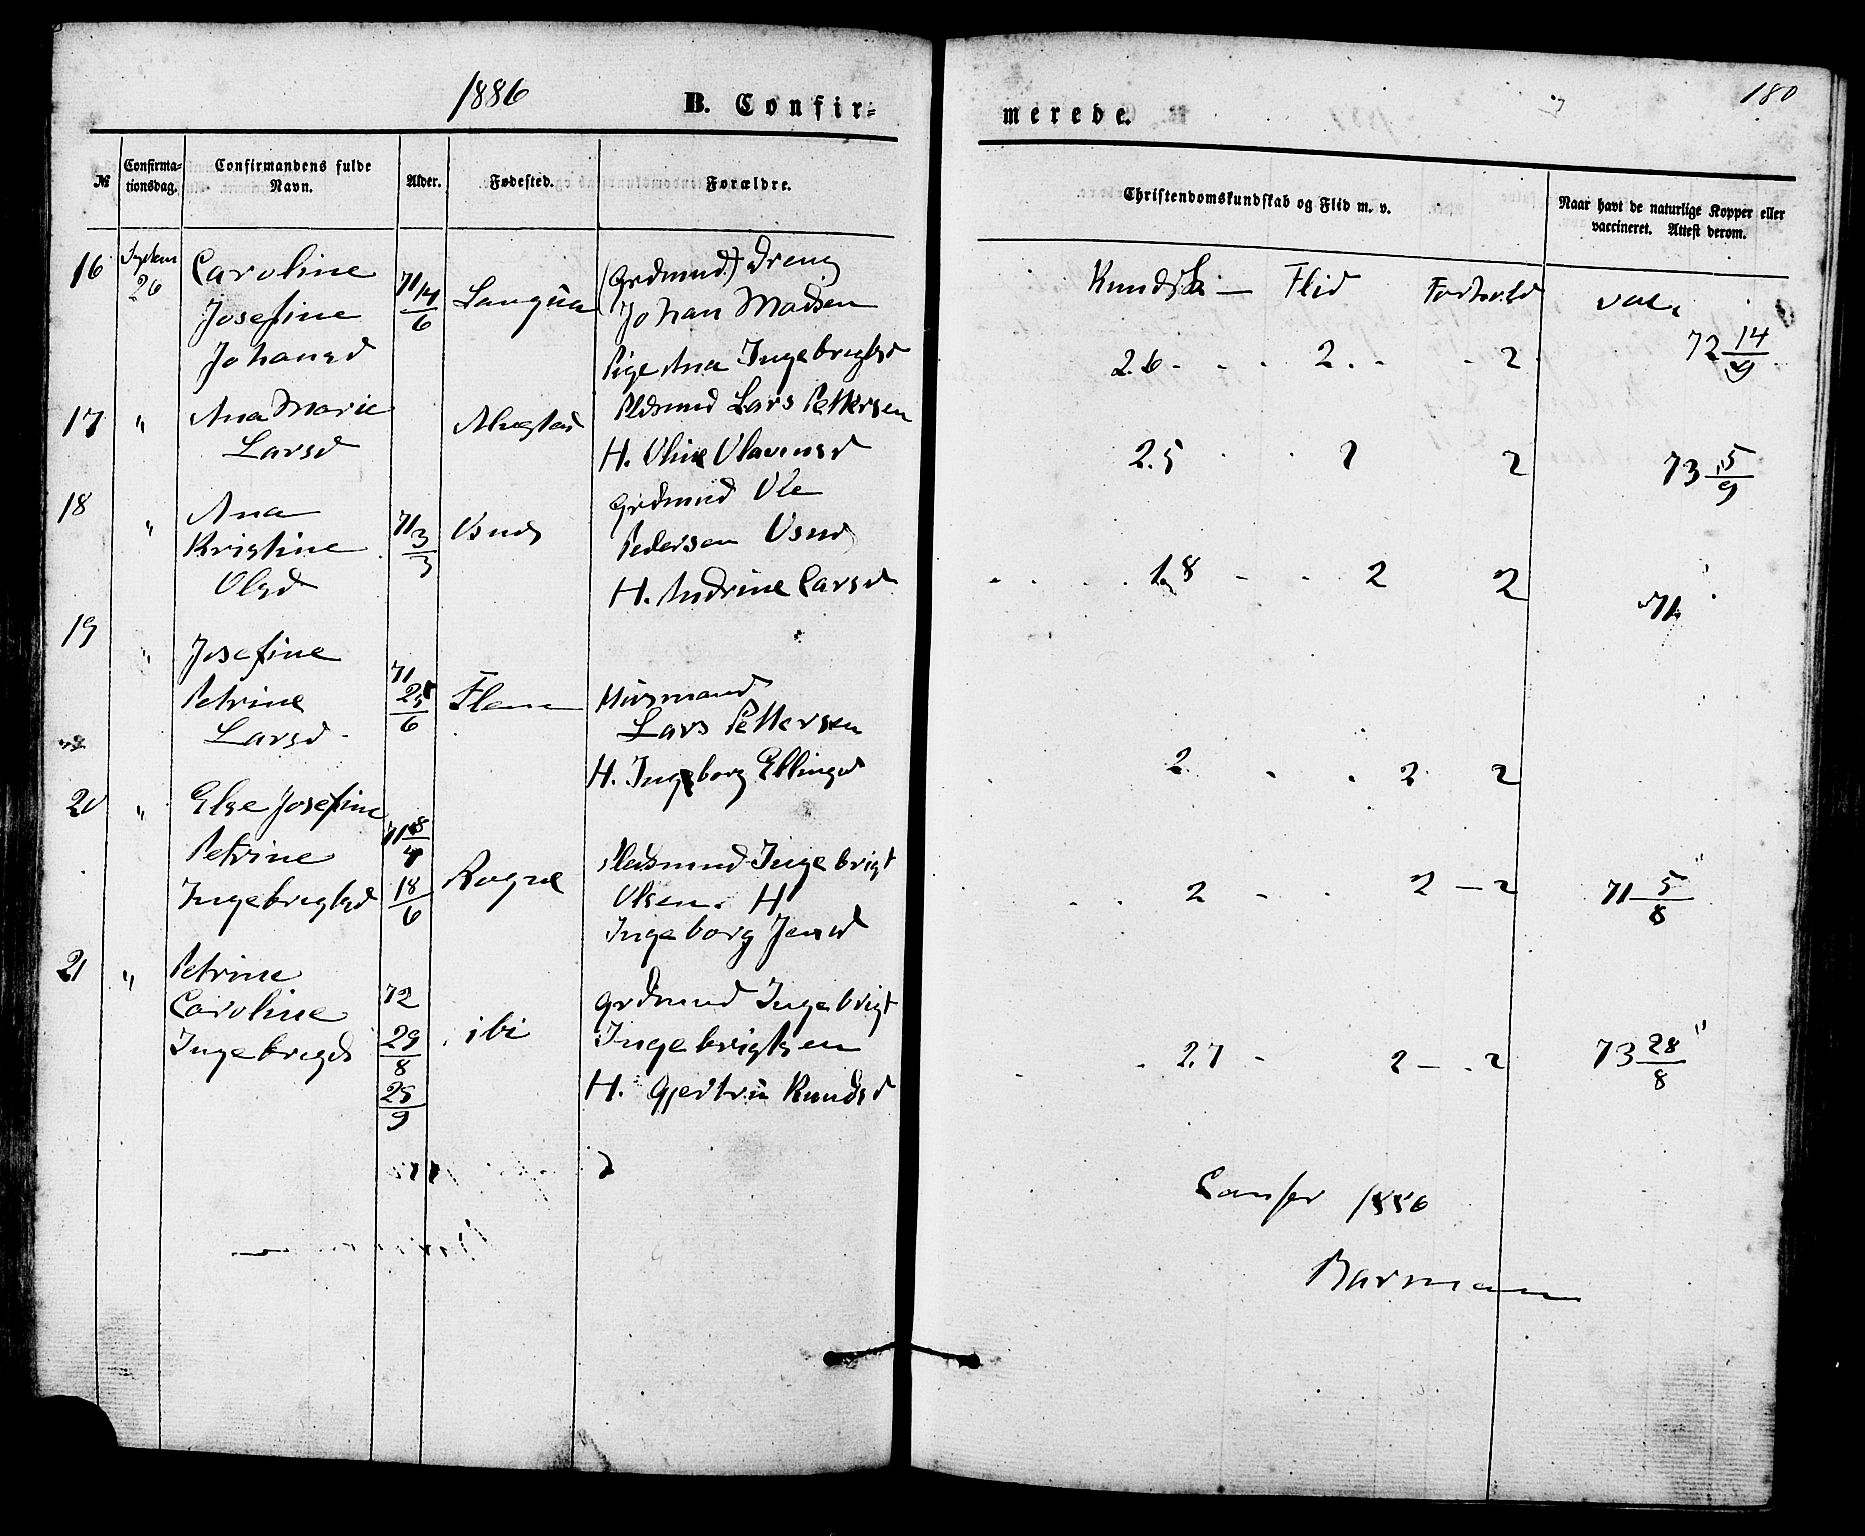 1886
B. Confir-
merede.
180
№
Confirma-
tionsdag.
Confirmandens fulde
Navn.
Alder.
Fødested.
Forældre.
Christendomskundskab og Flid m. v.
Naar havt de naturlige Kopper eller
vaccineret. Attest derom.
Kundsk — Flid Forhold vac.
16 26 Caroline
Josefine
Johansd
71 14/6
(Grdmnd.) Dreng
Johan Madsen
Pige Ana Ingebrigtsd
2.6 2. 2
72 14/9
17 " Ana Marie
Larsd
Pldsmnd Lars Pettersen
H. Oline Olavensd
2.5 2 2
73 5/9
18 " Ana
Kristine
Olsd
71 3/3
Usnes
Grdmnd Ole
Pedersen Usnes
H. Andrine Larsd
1.8 2 2
71
19 " Josefine
Petrine
Larsd
71
25/6
Flem
Husmand
Lars Pettersen
H. Ingeborg Ellingsd
2 2 2
20 " Else Josefine
Petrine
Ingebrigtsd
71 8/4
18/6
Rogne
Pladsmnd Ingebrigt
Olsen. H
Ingeborg Jensd
2 2 — 2
71 5/8 "
21 " Petrine
Caroline
Ingebrigtsd
72
29/8
25/9
ibi
Grdmnd Ingebrigt
Ingebrigtsen
H. Gjertru Knudsd
2.7 2 — 2
73 28/8 "
1886
Barman